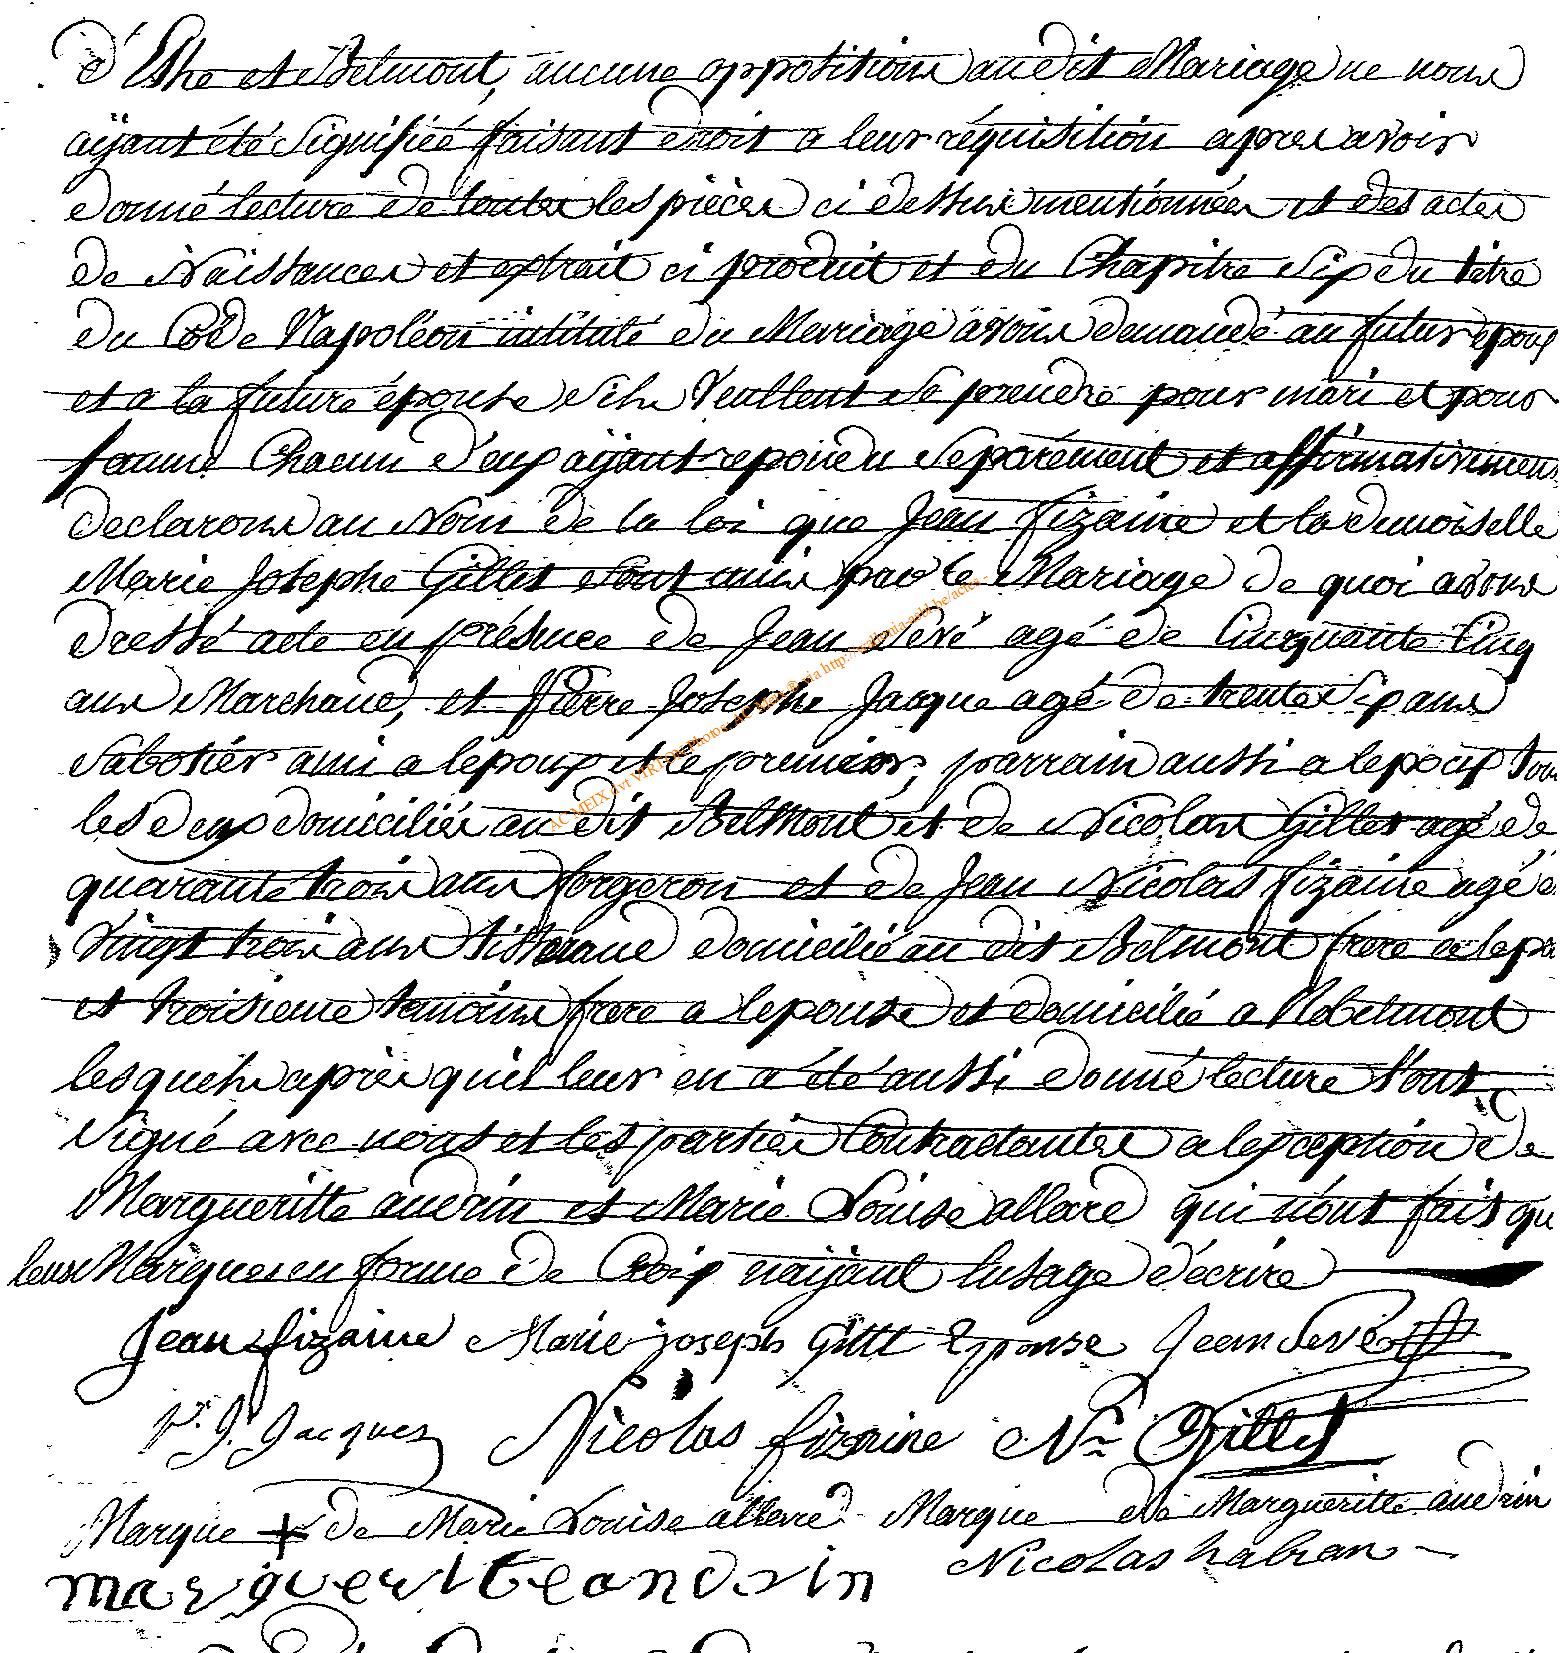 d'Ethe et Belmont, aucune oppotition au dit Mariage ne nous
aÿant été Signifiée faisant droit a leur réquisition apres avoir
donné lecture de toutes les pièces ci dessus mentionnées et des actes
de Naissances et extrait ci produit et du Chapitre Six du titre
du Code Napoléon intitulé du Mariage avons demandé au futur epoux
et a la future épouse s'ils Veullent se prendre pour mari et pour
famme Chacun d'eux aÿant repondu Separément et affirmativement
declarons au Nom de la loi que Jean fizaine et la demoiselle
Marie Josephe Gillet sont unis par le Mariage de quoi avons
dressé acte en présence de Jean Servé agé de Cinquante Cinq
ans Marchand, et Pierre Josephe Jacque agé de trente Six ans
Sabotier ami a lepoux et le premier, parrain aussi a lepoux tous
les deux domiciliés au dit Belmont et de Nicolas Gillet agé de
quarante trois ans forgeron et de Jean Nicolas fizaine agé de
Vingt trois ans tisserand domicilié au dit Belmont frere a lepo
et troisieme temoins frere a lepouse et domicilié a Robelmont
lesquels après quil leur en a été aussi donné lecture l'ont
Signé avec nous et les parties Contractantes a lexception de
Margueritte audrin et Marie Louise allard qui n'ont fait qu
leurs Marques en forme de Croix naÿant lusage décrire
Jean fizaine Marie joseph Gillet Epouse Jean Servé
P. J. Jacques Nicolas fizaine N. Gillet
Marque + de Marie Louise allard Marque de Margueritte audrin
Nicolas habran
margueriteandrin
AC MEIX dvt VIRTON Photos AC Meix® via http://geneania-mdv.be/actes-